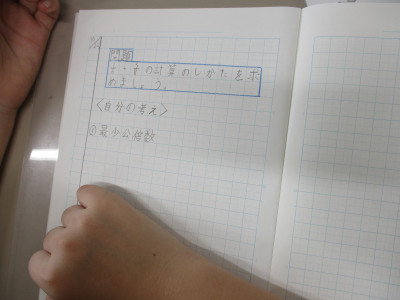 問題
の計算のしかたをホ
めましょう。
〈自分の考え〉
①最少公倍数